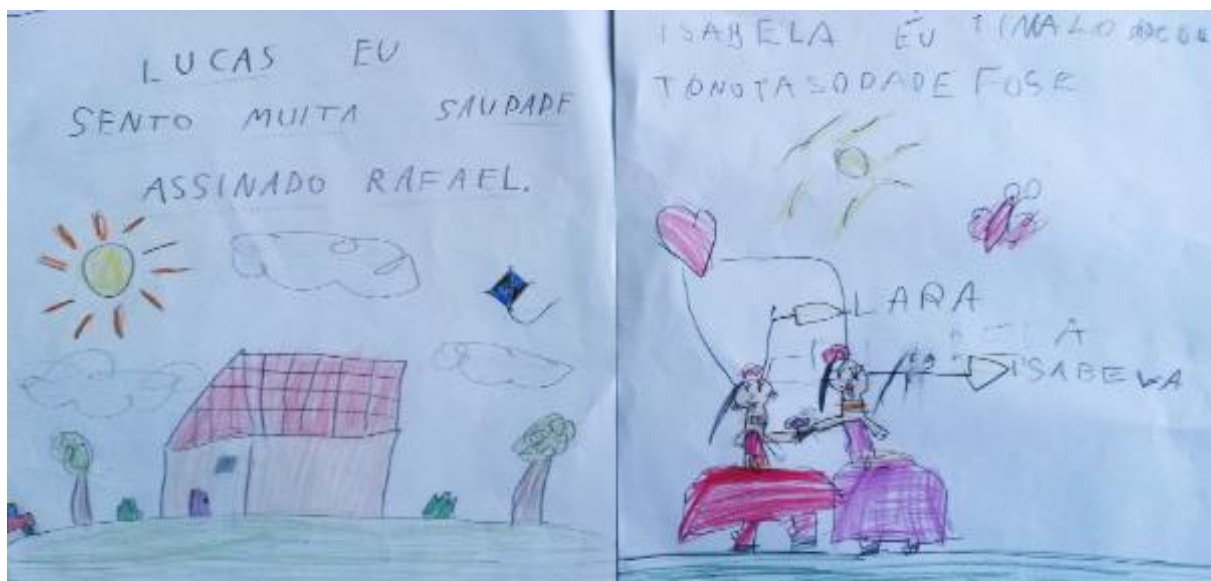 LUCAS EU
SENTO MUITA SAUDADE
ASSINADO RAFAEL.
ISABELA EU
TONOTASODADE FOSE
LARA
A
ISABELA